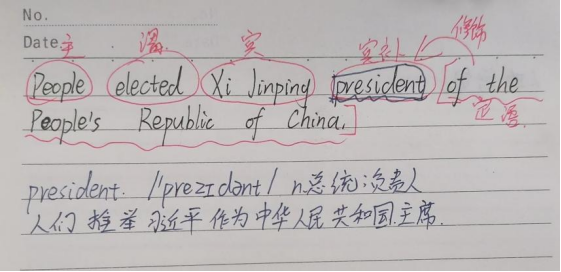 No.
Date 主 谓 宾 宾补 修饰
People elected Xi Jinping president [of the
People's Republic of China.] 定语
president. /'prezɪdənt/ n.总统;负责人
人们推举习近平作为中华人民共和国主席.